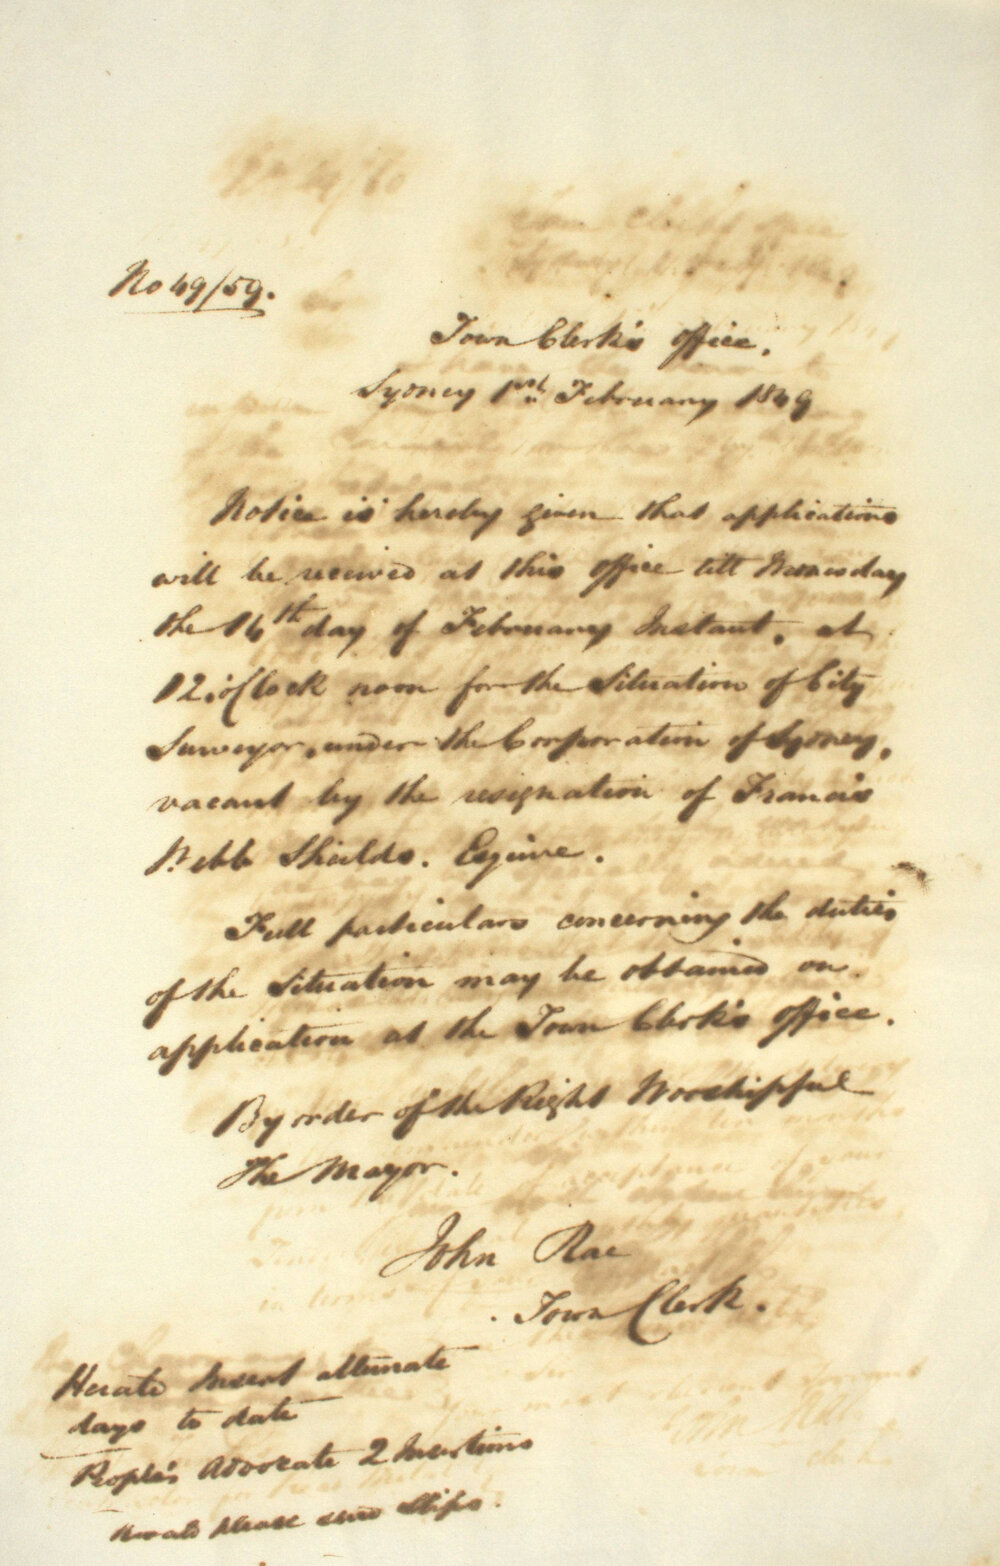 No 49/59.
Town Clerk's office,
Sydney 1st February 1849
Notice is hereby given that applications
will be received at this office till Wednesday
the 14th day of February Instant, at
12 o'Clock noon for the Situation of City
Surveyor, under the Corporation of Sydney,
vacant by the resignation of Francis
Webb Shields. Esquire.
Full particulars concerning the duties
of the Situation may be obtained on
application at the Town Clerk's office.
By order of the Right Worshipful
The Mayor.
John Rae
Town Clerk.
Herald Insert alternate
days to date
People's Advocate 2 Insertions
Herald please send Slips.